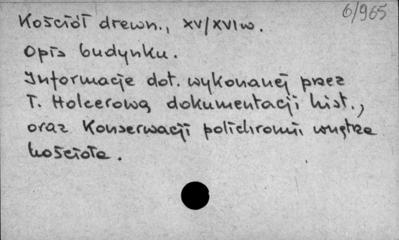 6/965
Kościół drewn., XV/XVI w.
Opis budynku.
Informacje dot. wykonanej przez
T. Holcerową dokumentacji hist.,
oraz Konserwacji polichromii wnętrza
kościoła.